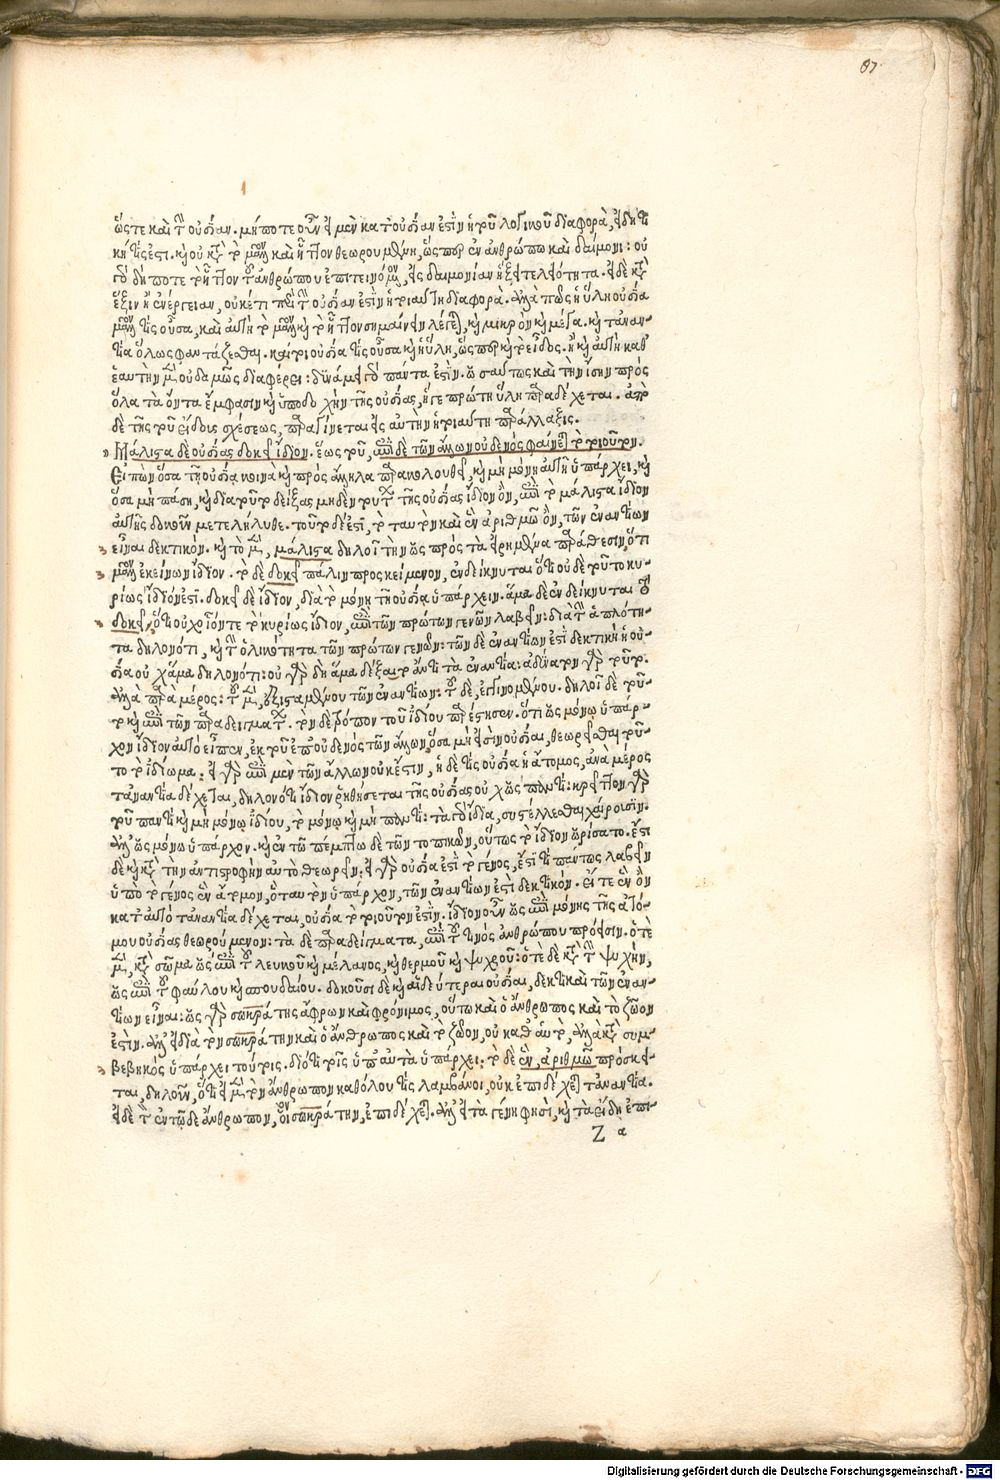 87
ὥστε καὶ τὴν οὐσίαν. μήποτε οὖν εἰ μὲν κατ' οὐσίαν ἐστὶν ἡ τοῦ λογικοῦ διαφορὰ, εἰδητι
κή τίς ἐστι. καὶ οὐ κατὰ τὸ μᾶλλον καὶ ἧττον θεωρουμένη, ὥσπερ ἐν ἀνθρώπῳ καὶ δαίμονι: οὐ
ἕξιν ἢ ἐνέργειαν, οὐκέτι περὶ τὴν οὐσίαν ἐστὶν ἡ τοιαύτη διαφορὰ. ἀλλὰ πῶς ἡ ὕλη οὐσία
μᾶλλον τὶς οὖσα, καὶ αὐτὴ τὸ μᾶλλον καὶ τὸ ἧττον σημαίνειν λέγεται, καὶ μικρὸν καὶ μέγα. καὶ τἀναν-
τία ὅλως φαντάζεσθαι. καίτοι οὐσία τὶς οὖσα καὶ ἡ ὕλη, ὥσπερ καὶ τὸ εἶδος. ἢ καὶ αὐτὴ καθ'
ἑαυτὴν μὲν οὐδαμῶς διαφέρει: δυνάμει γὰρ πάντα ἐστὶν. ὡσαύτως καὶ τὴν ἴσην πρὸς
ὅλα τὰ ὄντα ἔμφασιν καὶ ὑποδοχὴν τῆς οὐσίας, ἥγε πρώτη ὕλη παραδέχεται. ἀπὸ
δὲ τῆς τοῦ εἴδους σχέσεως, παραγίνεται εἰς αὐτὴν ἡ τοιαύτη παράλλαξις.
Μάλιστα δὲ οὐσίας δοκεῖ ἴδιον. ἕως τοῦ, ἐπὶ δὲ τῶν ἄλλων οὐδενὸς φαίνεται τὸ τοιοῦτον.
Εἰπὼν ὅσα τῇ οὐσίᾳ κοινὰ καὶ πρὸς ἄλληλα παρακολουθεῖ, καὶ μὴ μόνῃ αὐτῇ ὑπάρχει, καὶ
ὅσα μὴ πάσῃ, καὶ διὰ τοῦτο δείξας μηδὲν τούτων τῆς οὐσίας ἴδιον ὂν, ἐπὶ τὸ μάλιστα ἴδιον
αὐτῆς δοκοῦν μετελήλυθε. τοῦτο δέ ἐστι, τὸ ταυτὸν καὶ ἓν ἀριθμῷ ὂν, τῶν ἐναντίων
εἶναι δεκτικόν. καὶ τὸ μὲν, μάλιστα δηλοῖ τὴν ὡς πρὸς τὰ εἰρημένα παράθεσιν, ὅτι
μᾶλλον ἐκείνων ἴδιον. τὸ δὲ δοκεῖ πάλιν προσκείμενον, ἐνδείκνυται ὅτι οὐδὲ τοῦτο κυ-
ρίως ἴδιόν ἐστι. δοκεῖ δὲ ἴδιον, διὰ τὸ μόνῃ τῇ οὐσίᾳ ὑπάρχειν. ἅμα δὲ ἐνδείκνυται τὸ
δοκεῖ, ὅτι οὐχ οἷόν τε τὸ κυρίως ἴδιον, ἐπὶ τῶν πρώτων γενῶν λαβεῖν: διὰ τὴν ἁπλότη-
τα δηλονότι, καὶ τὴν ὁλικότητα τῶν πρώτων γενῶν: τῶν δὲ ἐναντίων ἐστὶ δεκτικὴ ἡ οὐ-
σία οὐχ ἅμα δηλονότι: οὐ γὰρ δὴ ἅμα δέξαιτο ἄν τι τὰ ἐναντία: ἀδύνατον γὰρ τοῦτο.
ἀλλὰ παρὰ μέρος: τοῦ μὲν, ἐξισταμένου τῶν ἐναντίων: τοῦ δὲ, ἐπιγινομένου. δηλοῖ δὲ τοῦ-
το καὶ ἐπὶ τῶν παραδειγμάτων. τὸν δὲ τρόπον τοῦ ἰδίου παρέστησεν. ὅτι ὡς μόνῳ ὑπάρ-
χον ἴδιον αὐτὸ εἶπεν, ἐκ τοῦ ἐπ' οὐδενὸς τῶν ἄλλων, ὅσα μὴ εἰσὶν οὐσίαι, θεωρεῖσθαι τοῦ-
το τὸ ἰδίωμα. εἰ γὰρ ἐπὶ μὲν τῶν ἄλλων οὐκ ἔστιν, ἡ δέ τις οὐσία ἡ ἄτομος, ἀνὰ μέρος
τἀναντία δέχεται, δηλονότι ἴδιον ῥηθήσεται τῆς οὐσίας οὐχ ὡς παντί: κρεῖττον γὰρ
τοῦ παντὶ καὶ μὴ μόνῳ ἰδίου, τὸ μόνῳ καὶ μὴ παντί: τὰ γὰρ ἴδια, συστέλλεσθαι χαίρουσιν.
ἀλλ' ὡς μόνῳ ὑπάρχον. καὶ ἐν τῷ πέμπτῳ δὲ τῶν τοπικῶν, οὕτως τὸ ἴδιον ὡρίσατο. ἔστι
δὲ καὶ κατὰ τὴν ἀντιστροφὴν αὐτὸ θεωρεῖν: εἰ γὰρ οὐσία ἐστὶ τὸ γένος, ἔστι τι πάντως λαβεῖν
ὑπὸ τὸ γένος ἓν ἄτομον, ὃ ταυτὸν ὑπάρχον, τῶν ἐναντίων ἐστὶ δεκτικόν. εἴτε ἓν ὂν
κατ' αὐτὸ τἀναντία δέχεται, οὐσία τὸ τοιοῦτόν ἐστὶν. ἴδιον οὖν ὡς ἐπὶ μόνης τῆς ἀτό-
μου οὐσίας θεωρούμενον: τὰ δὲ παραδείγματα, ἐπὶ τοῦ τινὸς ἀνθρώπου πρόεισιν. ὁτὲ
μὲν, κατὰ σῶμα ὡς ἐπὶ τοῦ λευκοῦ καὶ μέλανος, καὶ θερμοῦ καὶ ψυχροῦ: ὁτὲ δὲ κατὰ τὴν ψυχὴν,
ὡς ἐπὶ τοῦ φαύλου καὶ σπουδαίου. δοκοῦσι δὲ καὶ αἱ δεύτεραι οὐσίαι, δεκτικαὶ τῶν ἐναν-
τίων εἶναι: ὡς γὰρ σωκράτης ἄφρων καὶ φρόνιμος, οὕτω καὶ ὁ ἄνθρωπος καὶ τὸ ζῶον
ἐστὶν. ἀλλ' εἰ διὰ τὸν σωκράτην καὶ ὁ ἄνθρωπος καὶ τὸ ζῶον, οὐ καθ' αὑτὸ, ἀλλὰ κατὰ συμ-
βεβηκὸς ὑπάρχει τούτοις. διότι τοῖς ὑπ' αὐτὰ ὑπάρχει: τὸ δὲ ἓν, ἀριθμῷ πρόσκει-
ται, δηλοῦν, ὅτι εἰ μὲν τὸν ἄνθρωπον καθόλου τὶς λαμβάνοι, οὐκ ἐπιδέχεται τἀναντία.
εἰ δὲ τὸν ἐν τῷδε ἄνθρωπον, οἷον σωκράτην, ἐπιδέχεται. ἀλλ' εἰ τὰ γένη φησὶ, καὶ τὰ εἴδη ἐπι-
Z α
Digitalisierung gefördert durch die Deutsche Forschungsgemeinschaft - DFG